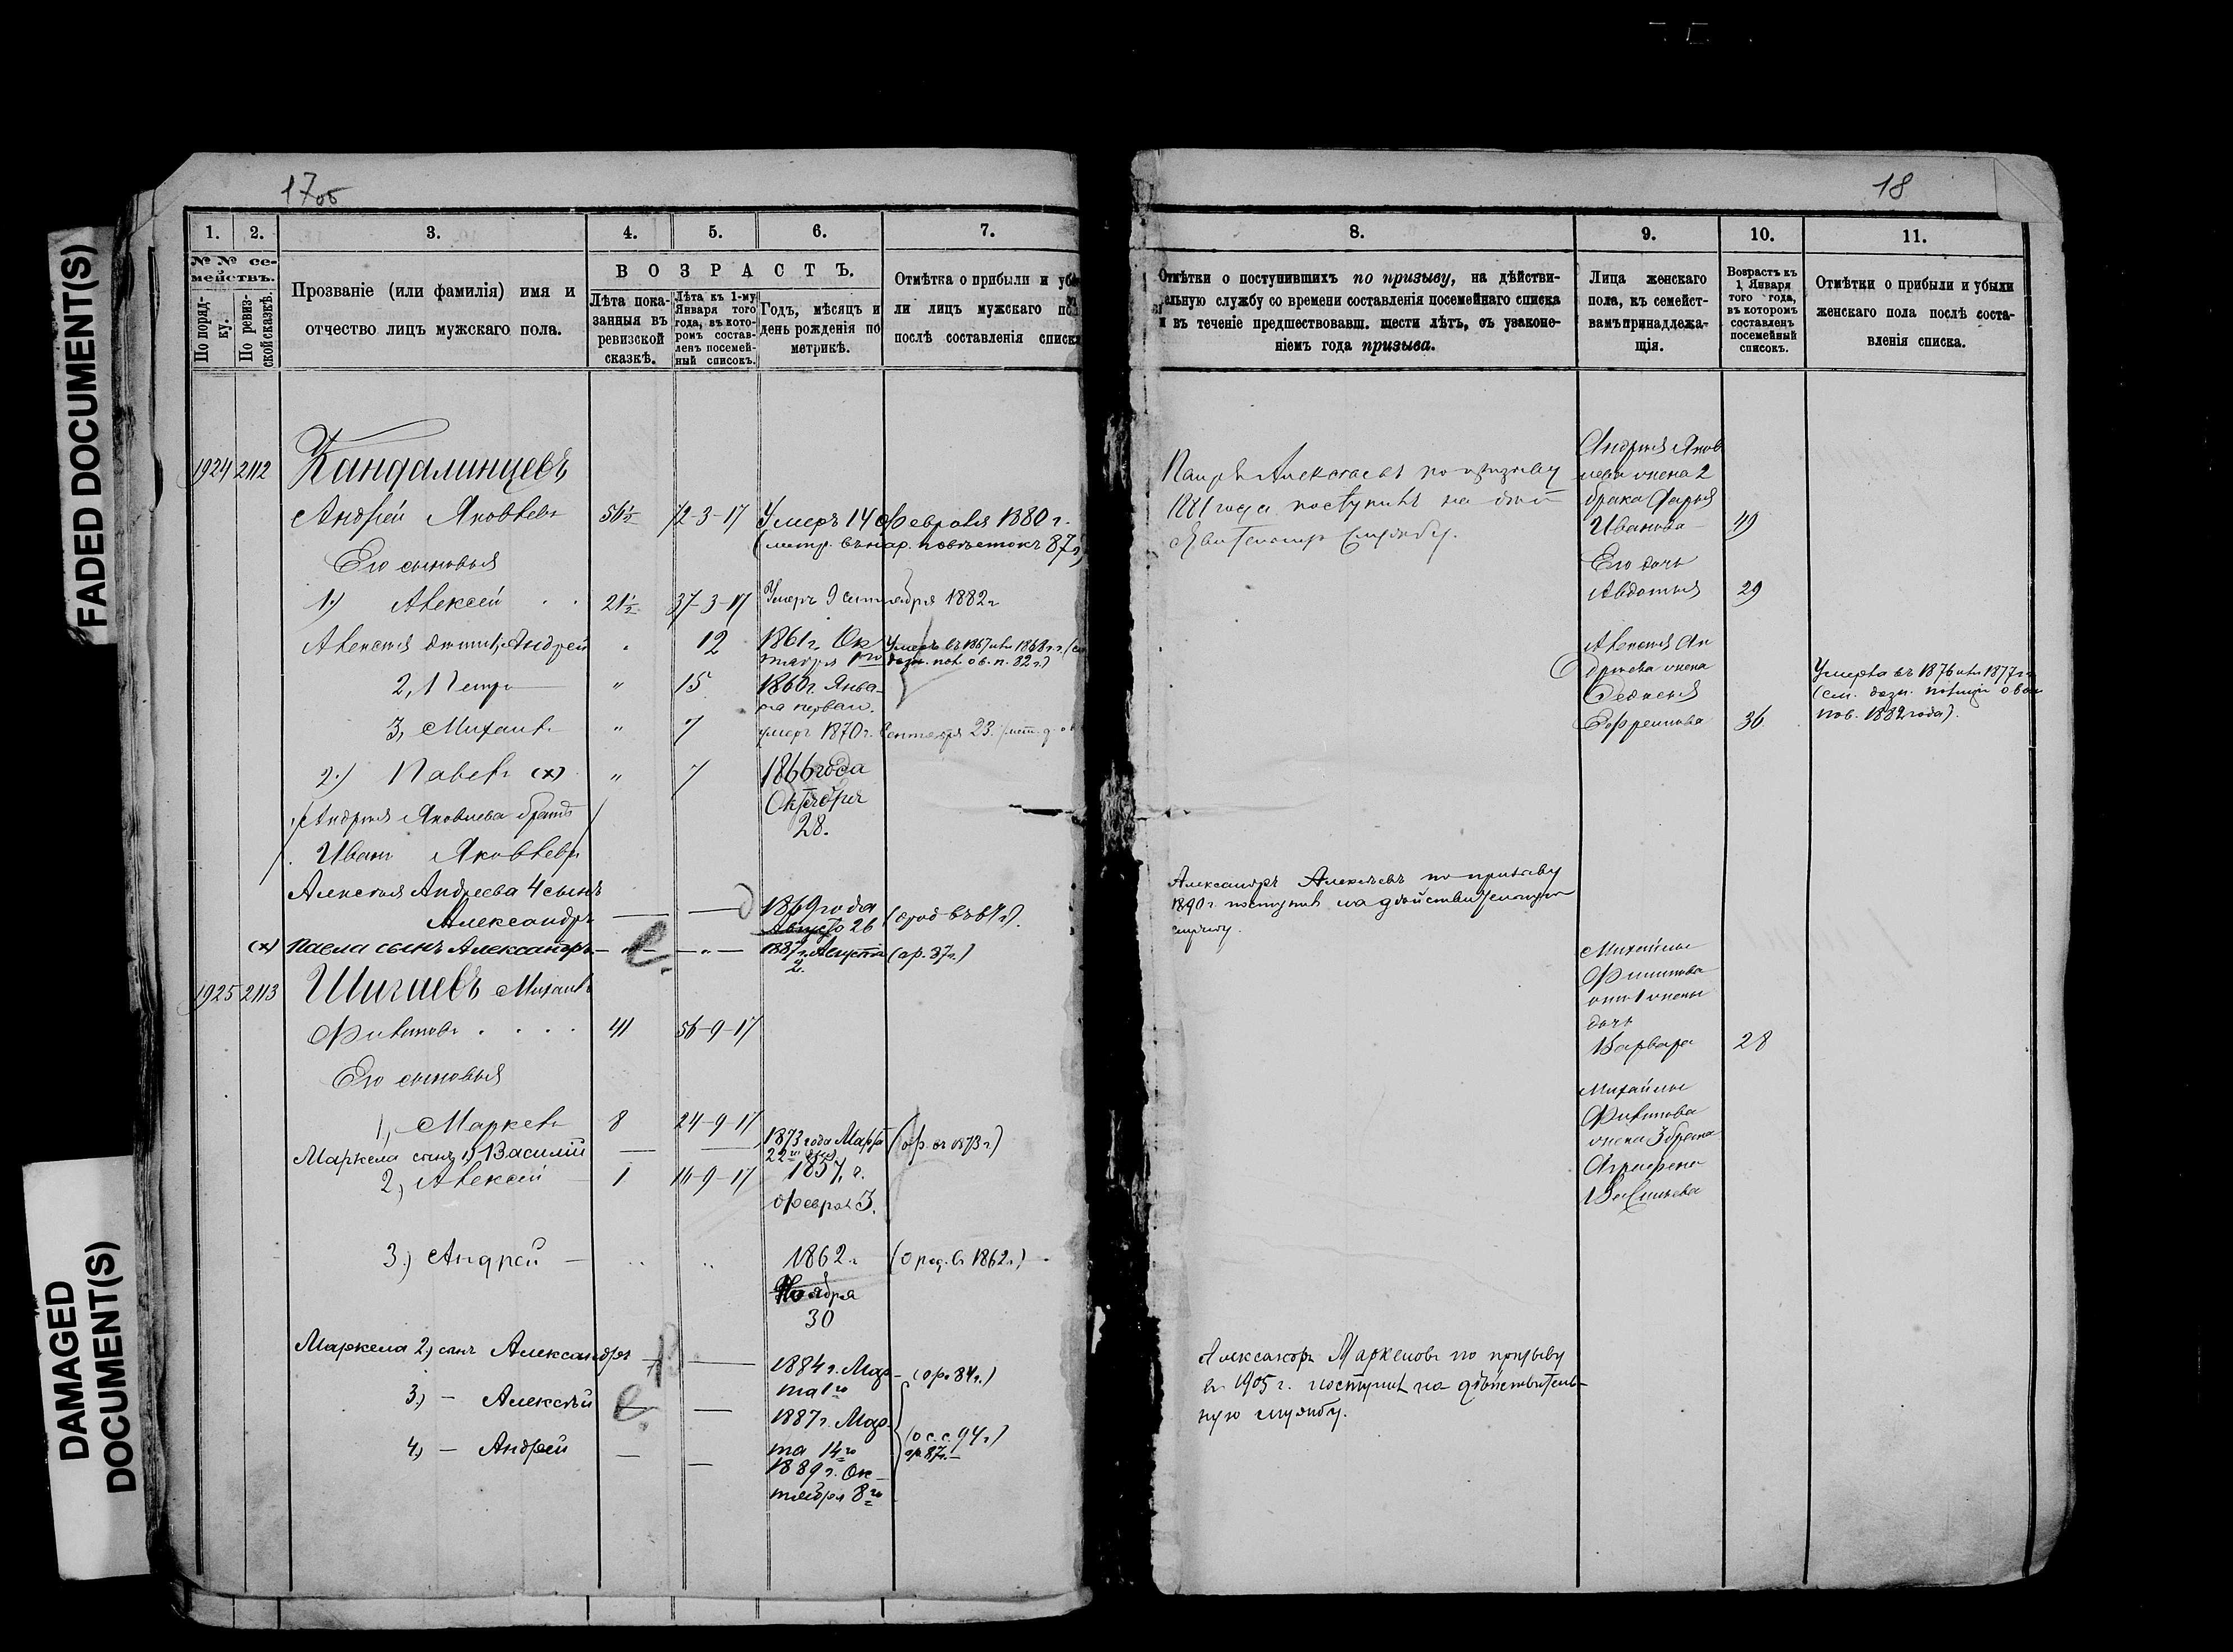 FADED DOCUMENT(S)
DAMAGED
DOCUMENT(S)
17об
1.
2.
3.
4.
5.
6.
7.
№ № се-
мействъ.
По поряд-
ку.
По ревиз-
ской сказкѣ.
Прозваніе (или фамилія) имя и
отчество лицъ мужскаго пола.
ВОЗРАСТЪ.
Лѣта пока-
занныя въ
ревизской
сказкѣ.
Лѣта къ 1-му
Января того
года, въ кото-
ромъ состав-
ленъ посемей-
ный списокъ.
Годъ, мѣсяцъ и
день рожденія по
метрикѣ.
Отмѣтка о прибыли и убы
ли лицъ мужскаго пол
послѣ составленія списка
1924 2112 Кандалинцевъ
Андрей Яковлевъ 56½ 72-3-17 Умеръ 14 Февраля 1880 г.
Его сыновья
1.) Алексѣй 21½ 37-3-17 Умеръ 9 сентября 1882 г
Алексѣя дѣти 1, Андрей " 12 1861 г. Ок
тября 1го
Умеръ въ 1867 или 1868 г.
2, Петръ " 15 1860 г. Янва-
ра перваго.
3, Михаилъ " 7 умеръ 1870 г. Сентября 23.
2.) Павелъ (х) " 7 1866 года
Октября
28.
Андрея Яковлева братъ
Иванъ Яковлевъ
Алексѣя Андреева 4 сынъ
Александръ — — 1869 года
Августа 26
(х) Павла сынъ Александръ — " — — " — 1887 г. Августа
2.
(ар. 87 г.)
1925 2113 Шигаевъ Михаилъ
Филиповъ 41 56-9-17
Его сыновья
1, Маркелъ 8 24-9-17
Маркела сынъ 1) Василій — — 1873 года Марта
22
(ор. въ 1873 г.)
2, Алексѣй 1 16-9-17 1857, г.
Феврал 3.
3.) Андрей — " " 1862 г.
Ноября
30
(о род. въ 1862 г.)
Маркела 2, сынъ Александръ — — 1884 г. Мар-
та 1го
(ор. 84 г.)
3.) — Алексѣй — — 1887 г. Мар-
та 14го
(о с.с. 94 г.)
ор 87 г.
4, — Андрей — — 1889 г. Ок-
тября 8го
18
8.
9.
10.
11.
Отмѣтки о поступившихъ по призыву, на дѣйстви-
тельную службу со времени составленія посемейнаго списка
и въ теченіе предшествовавш. шести лѣтъ, съ узаконе-
ніемъ года призыва.
Лица женскаго
пола, къ семейст-
вамъ принадлежа-
щія.
Возрастъ къ
1 Января
того года,
въ которомъ
составленъ
посемейный
списокъ.
Отмѣтки о прибыли и убыли
женскаго пола послѣ соста-
вленія списка.
Петръ Алексѣевъ по призыву
1881 года поступилъ на дѣй
ствительную службу.
Андрея Яков
лева жена 2
брака Дарья
Иванова 49
Его дочь
Авдотья 29
Алексѣя Ан
дреева жена
Евфимова 36
Умерла въ 1876 или 1877 г.
пов. 1882 года).
Александръ Алексѣевъ по призыву
1890 г. поступилъ на дѣйствительную
службу.
Михайлы
Филипова
отъ 1 жены
дочь
Варвара 28
Михайлы
Филипова
жена 3 брака
Аграфена
Васильева
Александръ Маркеловъ по призыву
въ 1905 г. поступилъ на дѣйствитель-
ную службу.